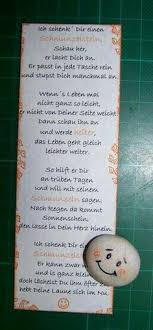 Ich schenk´ Dir einen
Schmunzelstein,
Schau her,
er lacht Dich an.
Er passt in jede Tasche rein
und stupst Dich manchmal an.
Wenn´s Leben mal
nicht ganz so leicht,
er nicht von Deiner Seite weicht
Dann schau ihn an
und werde heiter,
das Leben geht gleich
leichter weiter.
So hilft er Dir
an trüben Tagen
und will mit seinem
Schmunzeln sagen:
Nach Regen da kommt
Sonnenschein,
den lasse in Dein Herz hinein.
Ich schenk´ Dir ein
Schmunzelstein
Er kann zwar
und is ganz klein
doch lächelst Du ihn öfter an
hebt Deine Laune sich im Nu.